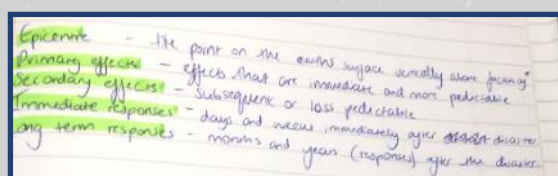 Epicentre - the point on the earths surface vertically above focus
Primary effects - effects that are immediate and more predictable
Secondary effects - Subsequent or less predictable
Immediate responses - days and weeks immediately after disaster
Long term responses - months and years (responses) after the disaster